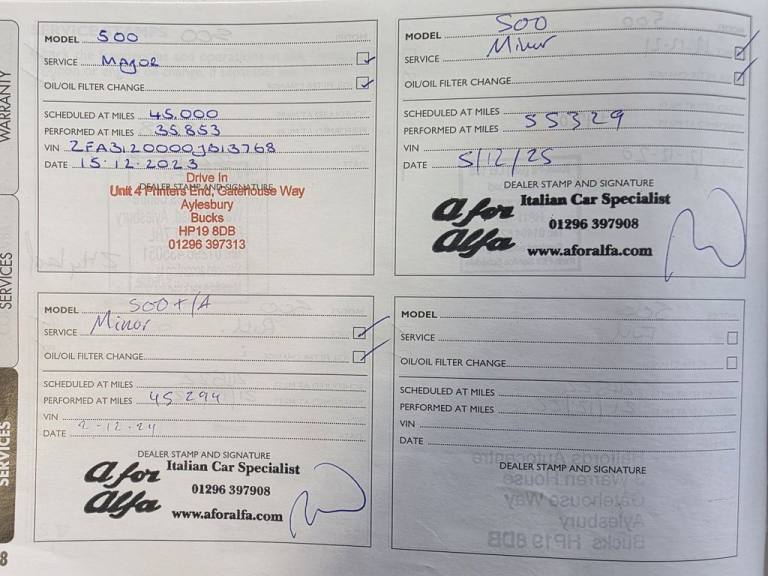 WARRANTY
SERVICES
SERVICES
8
MODEL 500
SERVICE Major
OIL/OIL FILTER CHANGE
SCHEDULED AT MILES 45.000
PERFORMED AT MILES 35.853
VIN ZFA3120000J813768
DATE 15.12.2023
DEALER STAMP AND SIGNATURE
Drive In
Unit 4 Printers End, Gatehouse Way
Aylesbury
Bucks
HP19 8DB
01296 397313
MODEL 500
SERVICE Minor
OIL/OIL FILTER CHANGE
SCHEDULED AT MILES
PERFORMED AT MILES 55329
VIN
DATE 5/12/25
DEALER STAMP AND SIGNATURE
a for Alfa
Italian Car Specialist
01296 397908
www.aforalfa.com
MODEL 500 T/A
SERVICE Minor
OIL/OIL FILTER CHANGE
SCHEDULED AT MILES
PERFORMED AT MILES 45294
VIN
DATE 2-12-24
DEALER STAMP AND SIGNATURE
a for Alfa
Italian Car Specialist
01296 397908
www.aforalfa.com
MODEL
SERVICE
OIL/OIL FILTER CHANGE
SCHEDULED AT MILES
PERFORMED AT MILES
VIN
DATE
DEALER STAMP AND SIGNATURE